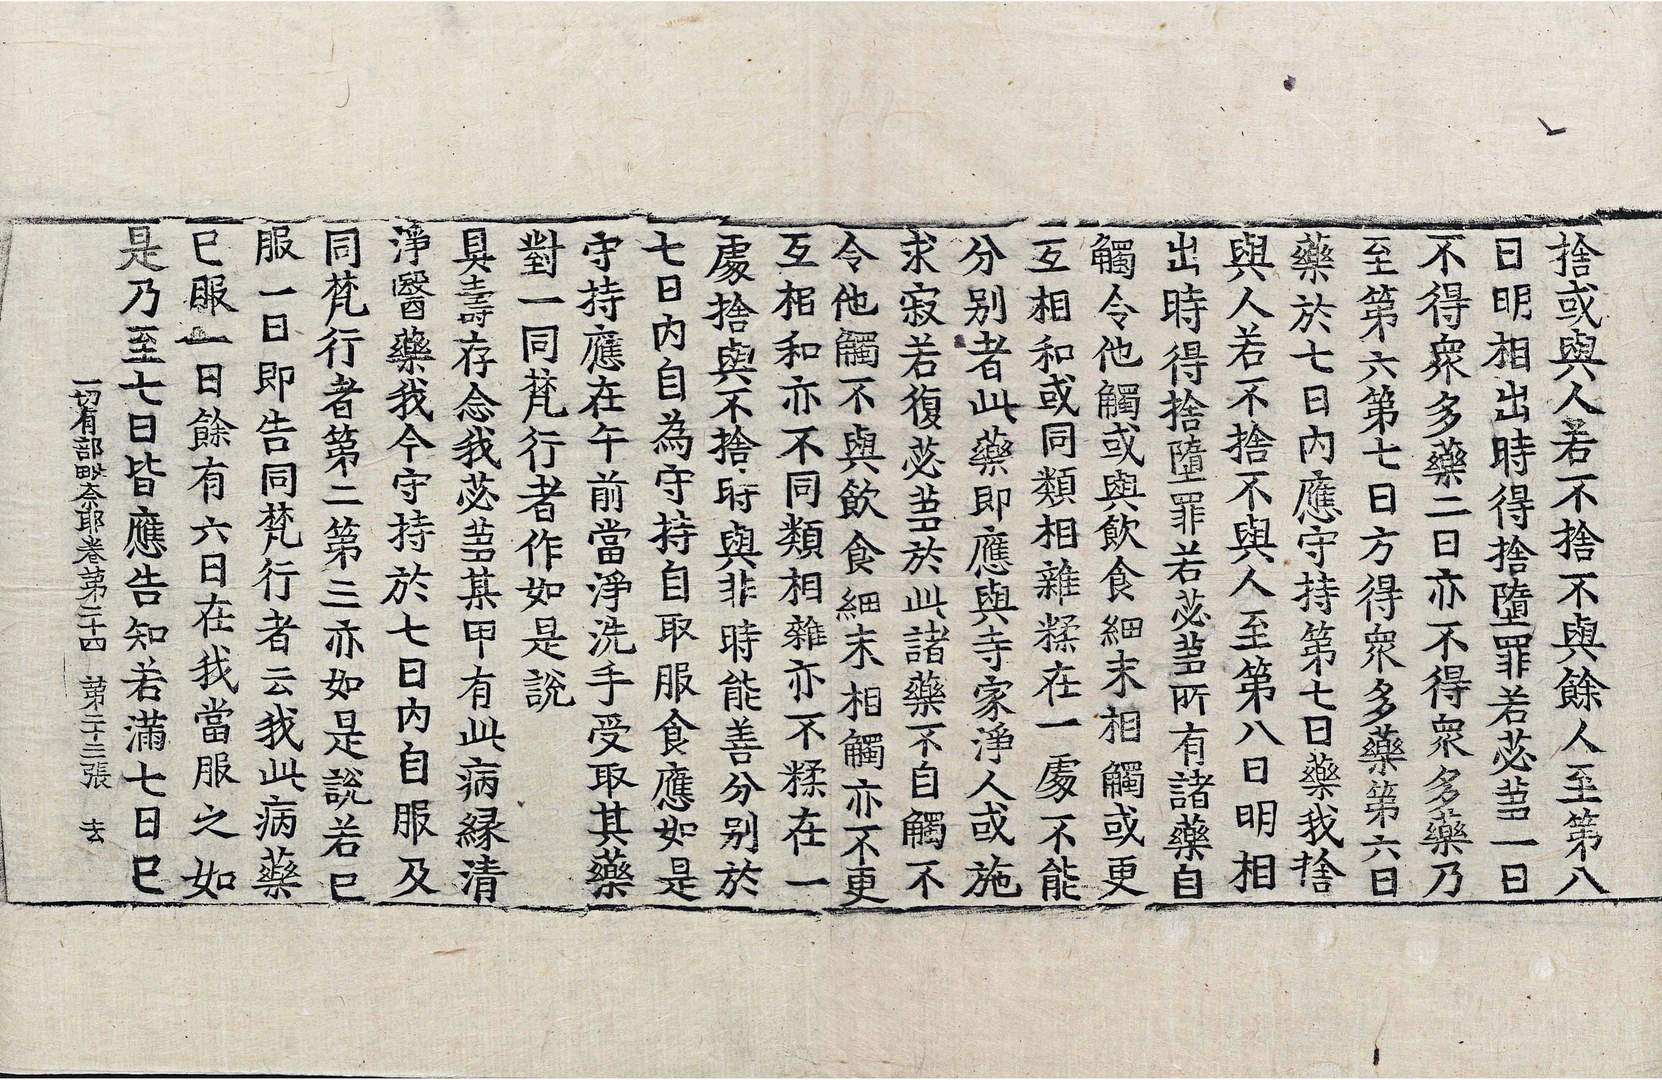 捨或與人若不捨不與餘人至第八
日明相出時得捨墮罪若苾芻一日
不得衆多藥二日亦不得衆多藥乃
至第六第七日方得衆多藥第六日
藥於七日內應守持第七日藥我捨
與人若不捨不與人至第八日明相
出時得捨墮罪若苾芻所有諸藥自
觸令他觸或與飲食細末相觸或更
互相和或同類相雜糅在一處不能
分別者此藥即應與寺家淨人或施
求寂若復苾芻於此諸藥不自觸不
令他觸不與飲食細末相觸亦不更
互相和亦不同類相雜亦不糅在一
處捨與不捨時與非時能善分別於
七日內自為守持自取服食應如是
守持應在午前當淨洗手受取其藥
對一同梵行者作如是說
具壽存念我苾芻某甲有此病緣清
淨醫藥我今守持於七日內自服及
同梵行者第二第三亦如是說若已
服一日即告同梵行者云我此病藥
已服一日餘有六日在我當服之如
是乃至七日皆應告知若滿七日已
一切有部毗奈耶卷第二十四 第二十三張 去